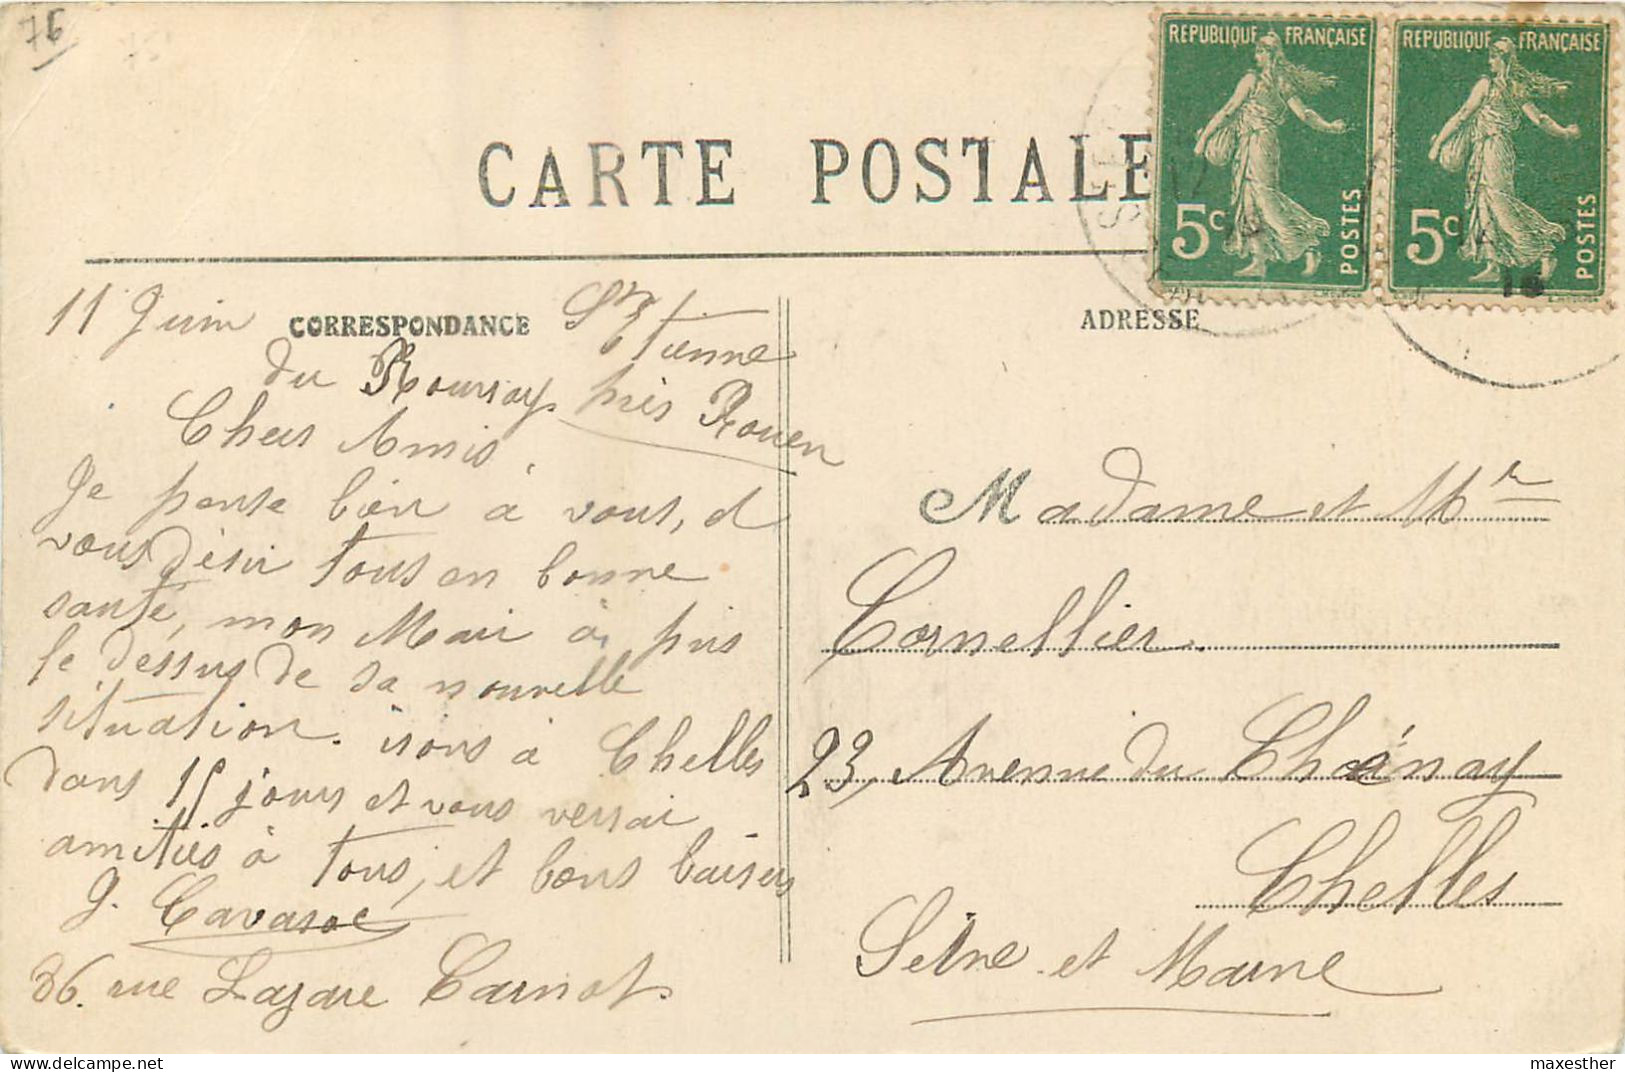 76
CARTE POSTALE
REPUBLIQUE FRANÇAISE
5c POSTES
REPUBLIQUE FRANÇAISE
5c POSTES
CORRESPONDANCE
ADRESSE
11 Juin St Etienne
du Rouvray près Rouen
Chers Amis
Je pense bien à vous, et
vous désir tous en bonne
santé, mon Mari à pris
le dessus de sa nouvelle
situation. irons à Chelles
dans 15 jours et vous verrai
amitiés à tous, et bons baisers
J. Cavasoe
36. rue Lazare Carnot.
Madame et Mr
Cornellier.
23, Avenue du Chénay
Chelles
Seine et Marne
maxesther